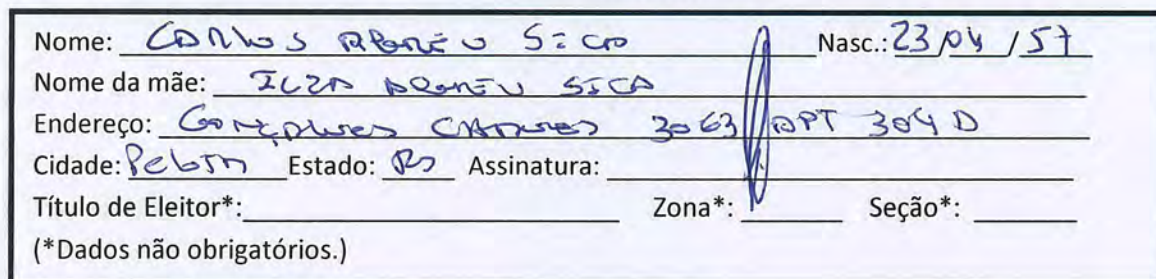 Nome: CARLOS ABREU SICA Nasc.: 23/04/57
Nome da mãe: ILZA ABREU SICA
Endereço: GONÇALVES CHAVES 3063 APT 304 D
Cidade: Pelotas Estado: RS Assinatura:
Título de Eleitor*: Zona*: Seção*:
(*Dados não obrigatórios.)